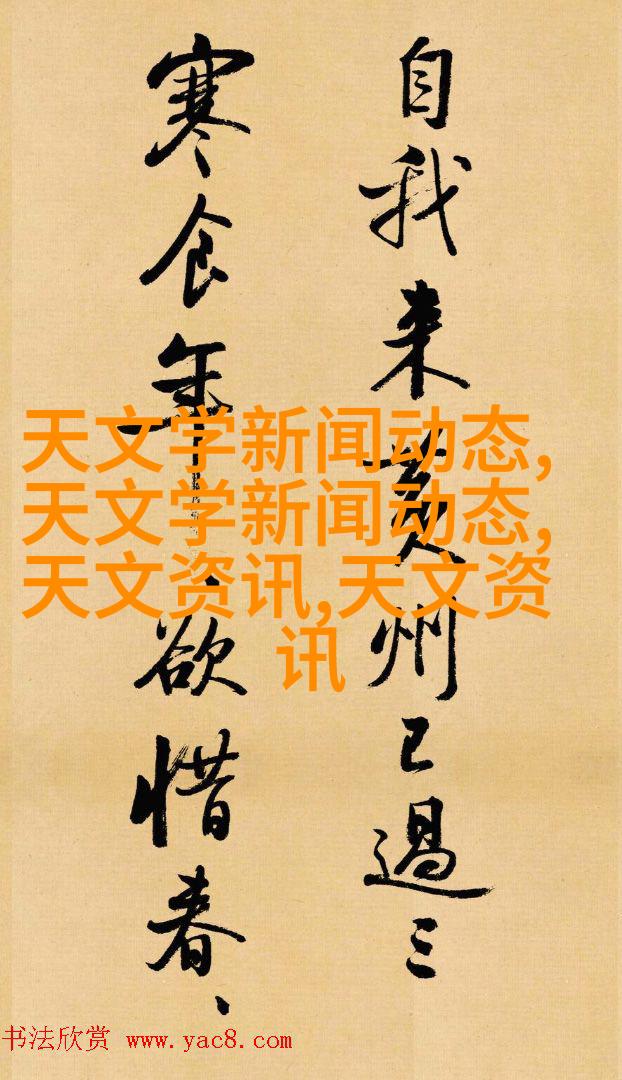 自我来黄州已過三
寒食年、欲惜春、
天文学新闻动态,
天文学新闻动态,
天文资讯,天文资
讯
书法欣赏 www.yac8.com